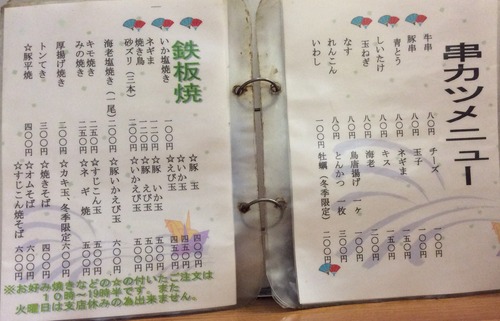 串カツメニュー
牛串 八〇円
豚串 八〇円
青とう 八〇円
しいたけ 八〇円
玉ねぎ 八〇円
なす 八〇円
れんこん 八〇円
いわし 一〇〇円
チーズ 一〇〇円
玉子 一〇〇円
ネギま 一〇〇円
キス 一五〇円
海老 一五〇円
鳥唐揚げ 一ヶ 一〇〇円
とんかつ 一枚 三〇〇円
牡蠣(冬季限定) 二〇〇円
鉄板焼
いか塩焼き 一〇〇円
ネギま 一二〇円
焼き鳥 一二〇円
砂ズリ(三本)
海老塩焼き(一尾) 二〇〇円
キモ焼き 二五〇円
みの焼き 二五〇円
厚揚げ焼き 二〇〇円
トンてき 三〇〇円
☆豚平焼 四〇〇円
☆豚玉 四〇〇円
☆いか玉 四五〇円
☆えび玉 四五〇円
☆豚いか玉 五〇〇円
☆豚えび玉 五〇〇円
☆豚いかえび玉 六〇〇円
☆すじこん玉 五〇〇円
☆ネギ焼 五〇〇円
☆カキ玉 冬季限定 六〇〇円
☆焼きそば
☆オムそば 六〇〇円
☆すじこん焼そば
※お好み焼きなどの☆の付いたご注文は
10時〜19時半です。また
火曜日は支店休みの為出来ません。